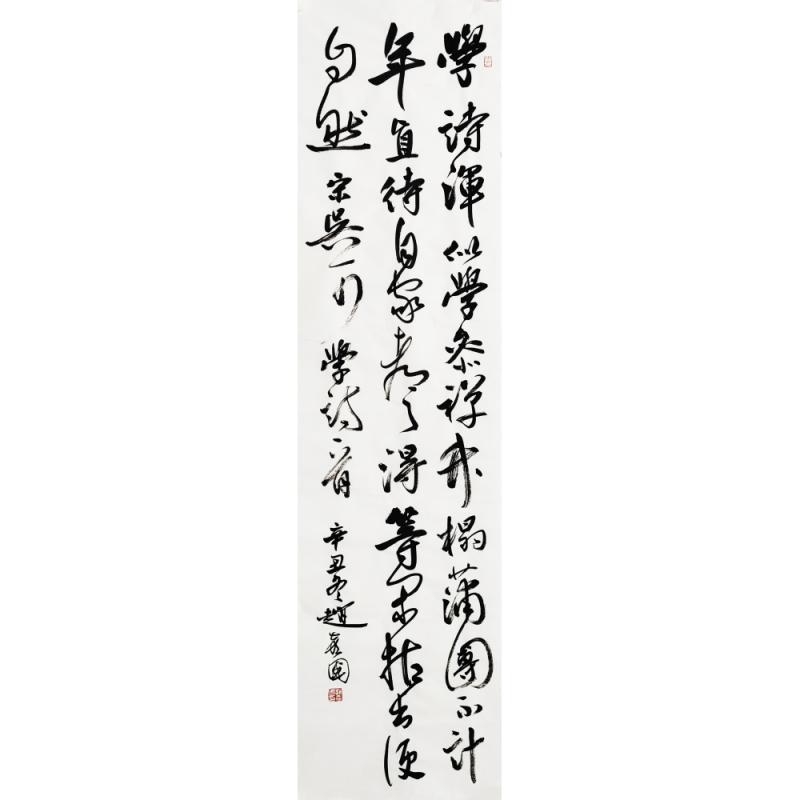 學詩渾似學參禪竹榻蒲團不計
年直待自家都了得等閒拈出便
自然 宋吳可學詩一首 辛丑冬趙